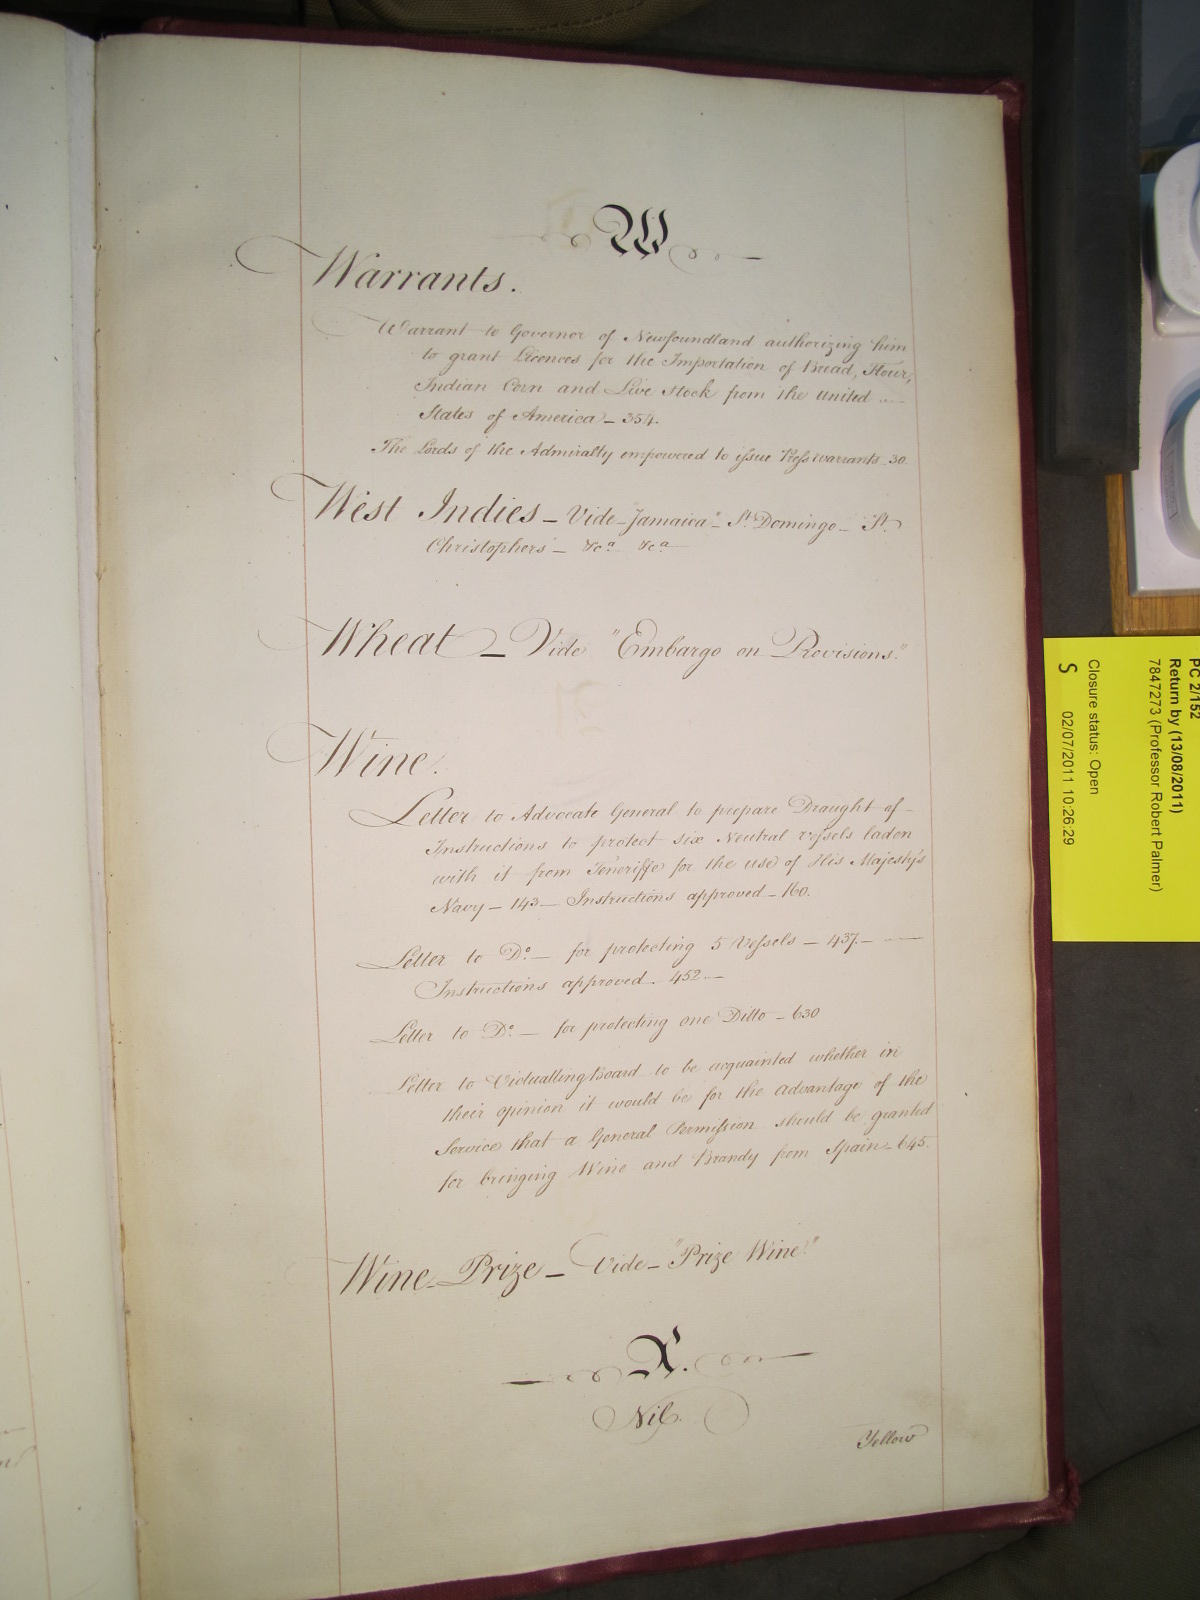 W
Warrants.
Warrant to Governor of Newfoundland authorizing him
to grant Licences for the Importation of Bread, Flour,
Indian Corn and Live Stock from the United
States of America - 354.
The Lords of the Admiralty empowered to issue Press warrants - 30.
West Indies - Vide "Jamaica" - St. Domingo - St.
Christophers - &ca &ca
Wheat - Vide "Embargo on Provisions."
Wine.
Letter to Advocate General to prepare Draught of
Instructions to protect six Neutral vessels laden
with it from Teneriffe for the use of His Majesty's
Navy - 143 - Instructions approved - 160.
Letter to Do. - for protecting 5 Vessels - 437. -
Instructions approved. 452 -
Letter to Do. - for protecting one Ditto - 630
Letter to Victualling Board to be acquainted whether in
their opinion it would be for the advantage of the
Service that a General Permission should be granted
for bringing Wine and Brandy from Spain - 645.
Wine Prize - Vide - "Prize Wine"
X.
Nil.
Yellow
PC 2/152
Return by (13/08/2011)
7847273 (Professor Robert Palmer)
Closure status: Open
S 02/07/2011 10:26:29